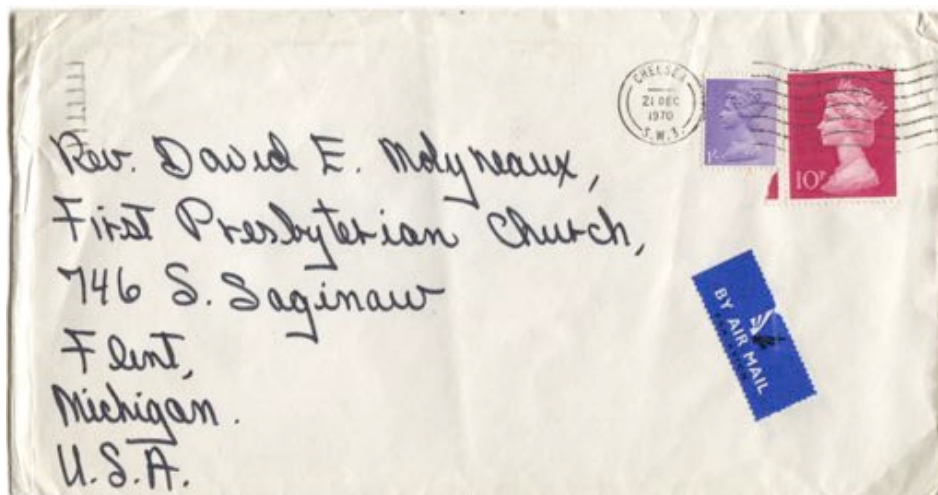 CHELSEA
21 DEC
1970
S.W.3.
1/-
10P
Rev. David E. Molyneaux,
First Presbyterian Church,
746 S. Saginaw
Flint,
Michigan.
U.S.A.
BY AIR MAIL
PAR AVION